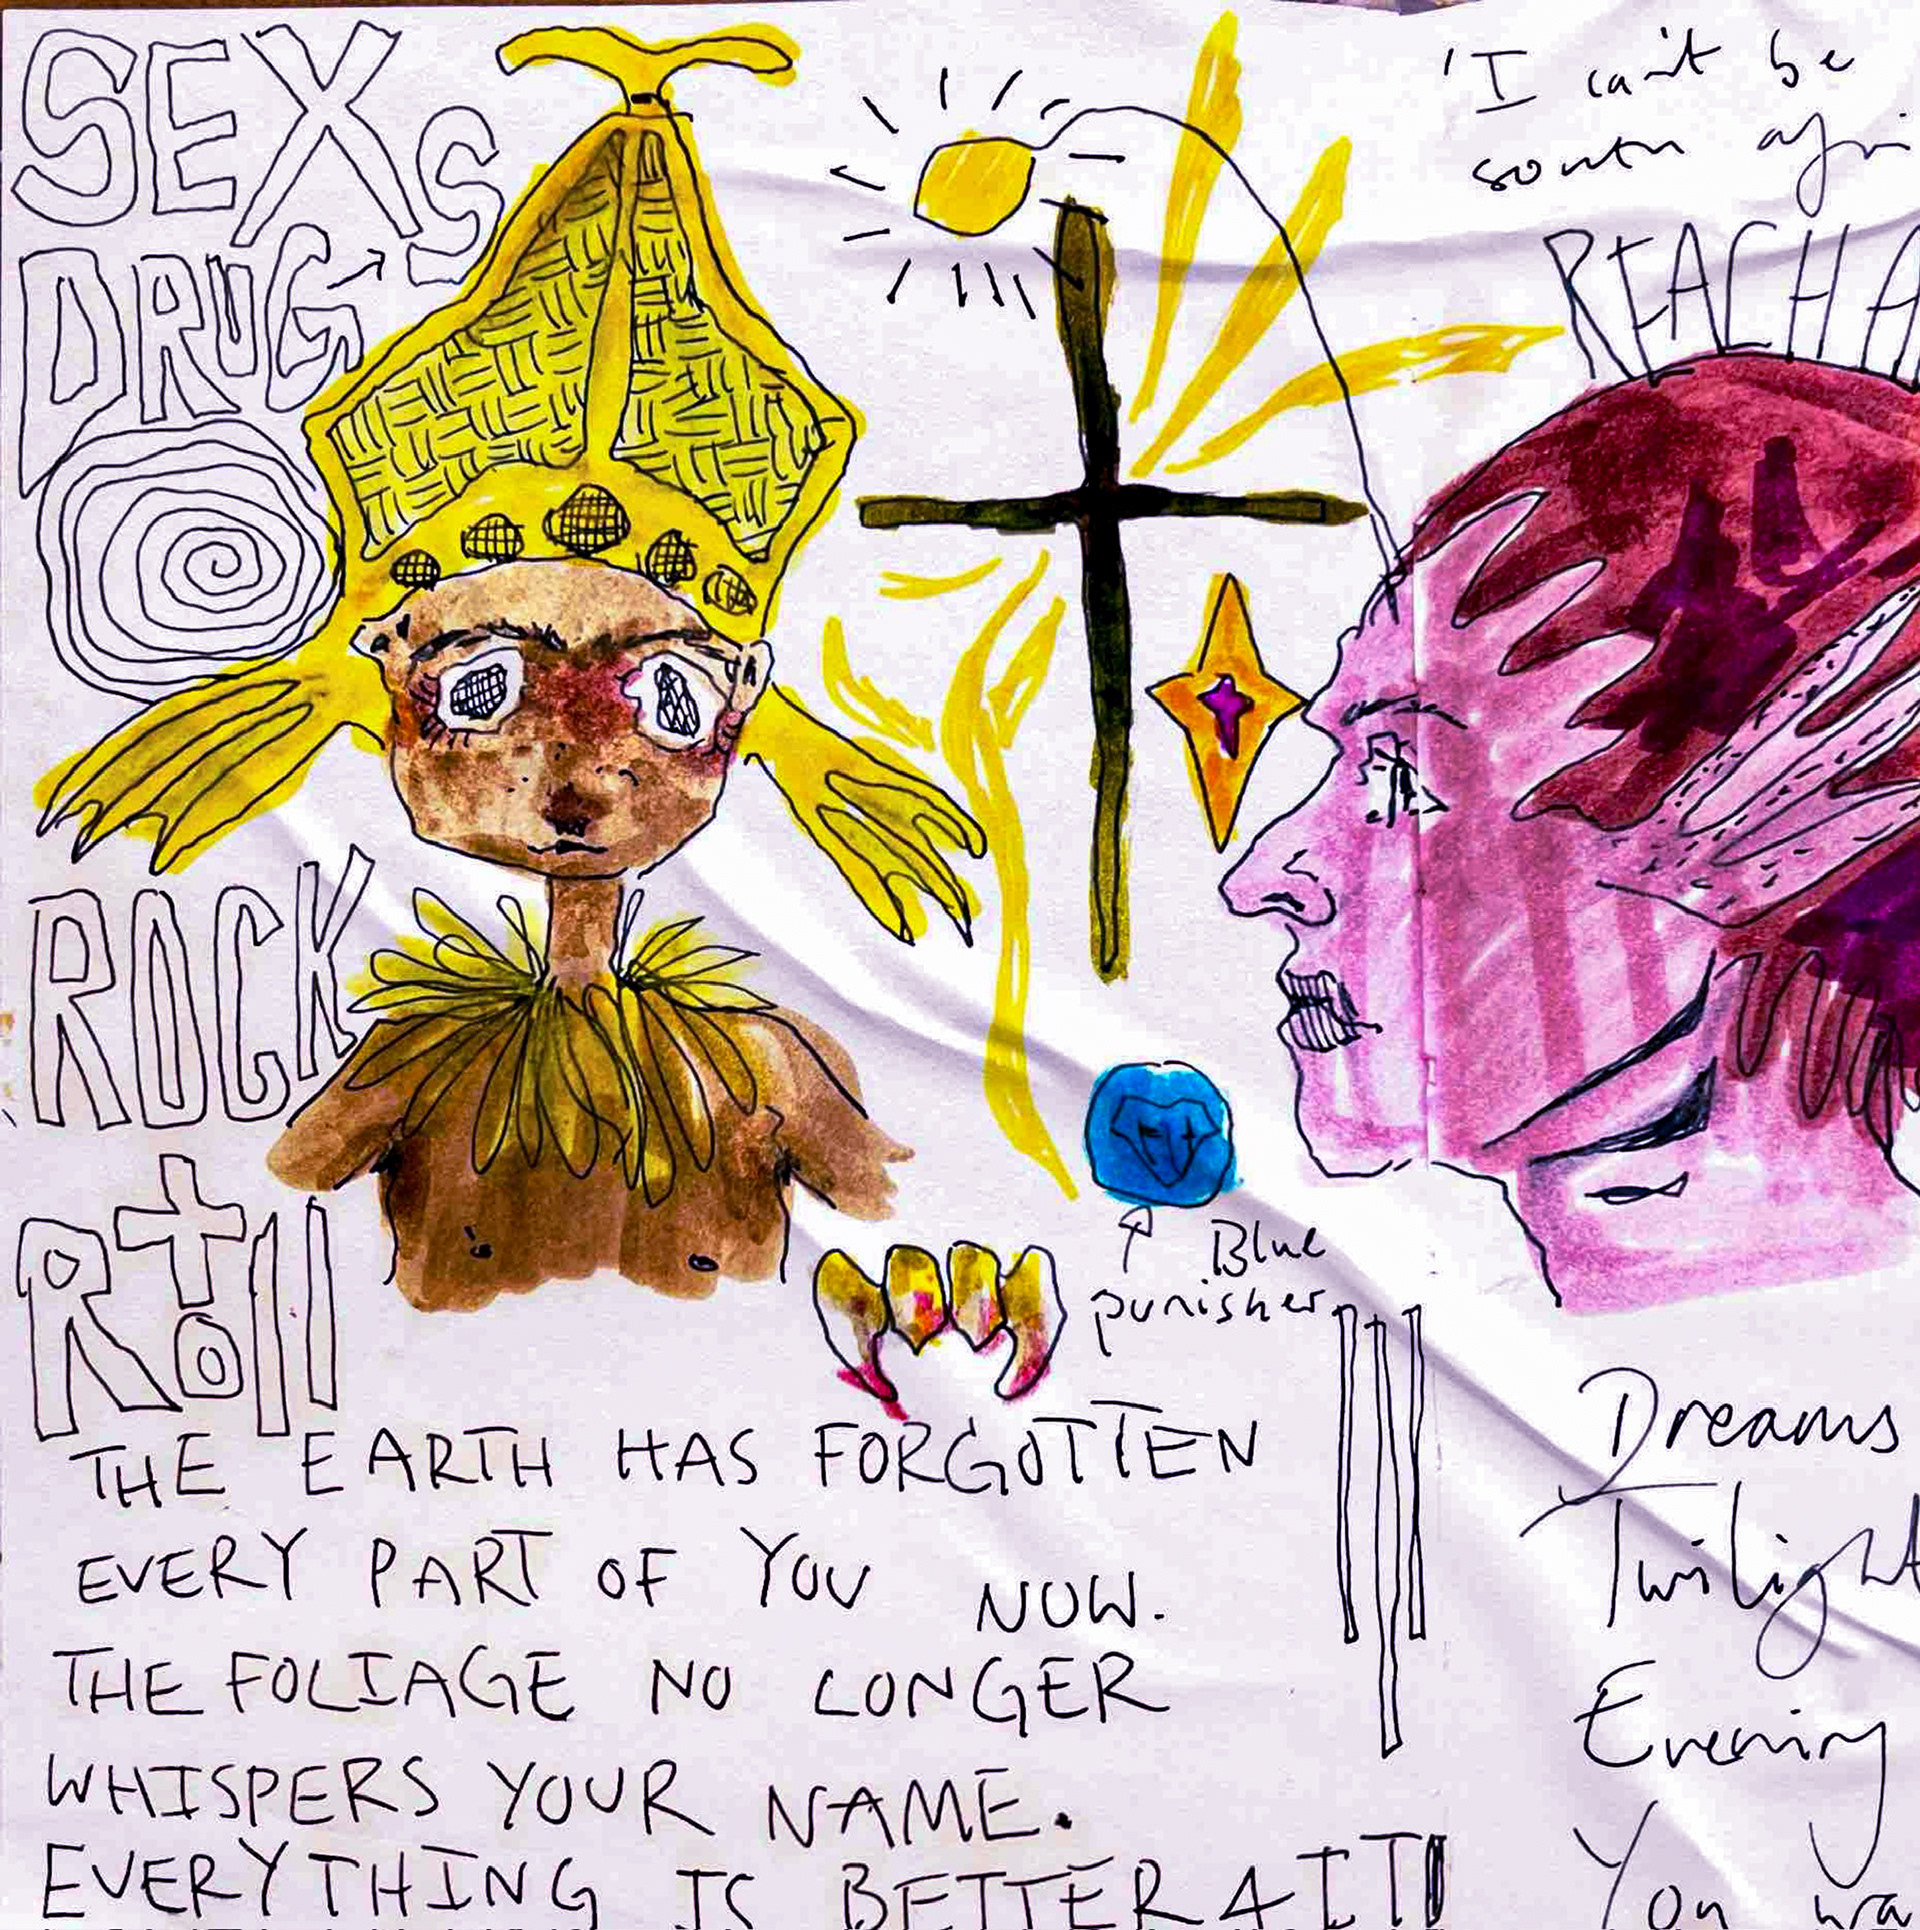 SEX
DRUG S
ROCK
Roll
'I can't be
south
REACH A
Blue
punisher
THE EARTH HAS FORGOTTEN
EVERY PART OF YOU NOW.
THE FOLIAGE NO LONGER
WHISPERS YOUR NAME.
EVERYTHING IS BETTER 4 IT
Dreams
Twilight
Evening
You